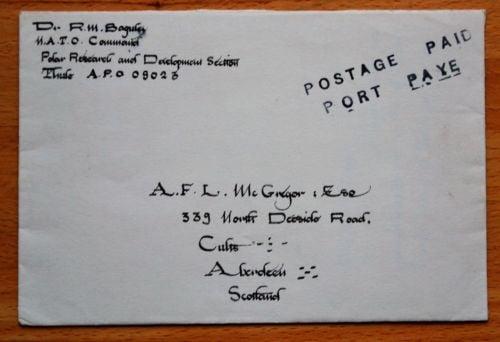 Dr R.M. Baguley
N.A.T.O. Command
Polar Research and Development Section
Thule A.P.O 09023
POSTAGE PAID
PORT PAYE
A.F.L. McGregor : Esq
339 North Deeside Road.
Cults
Aberdeen
Scotland